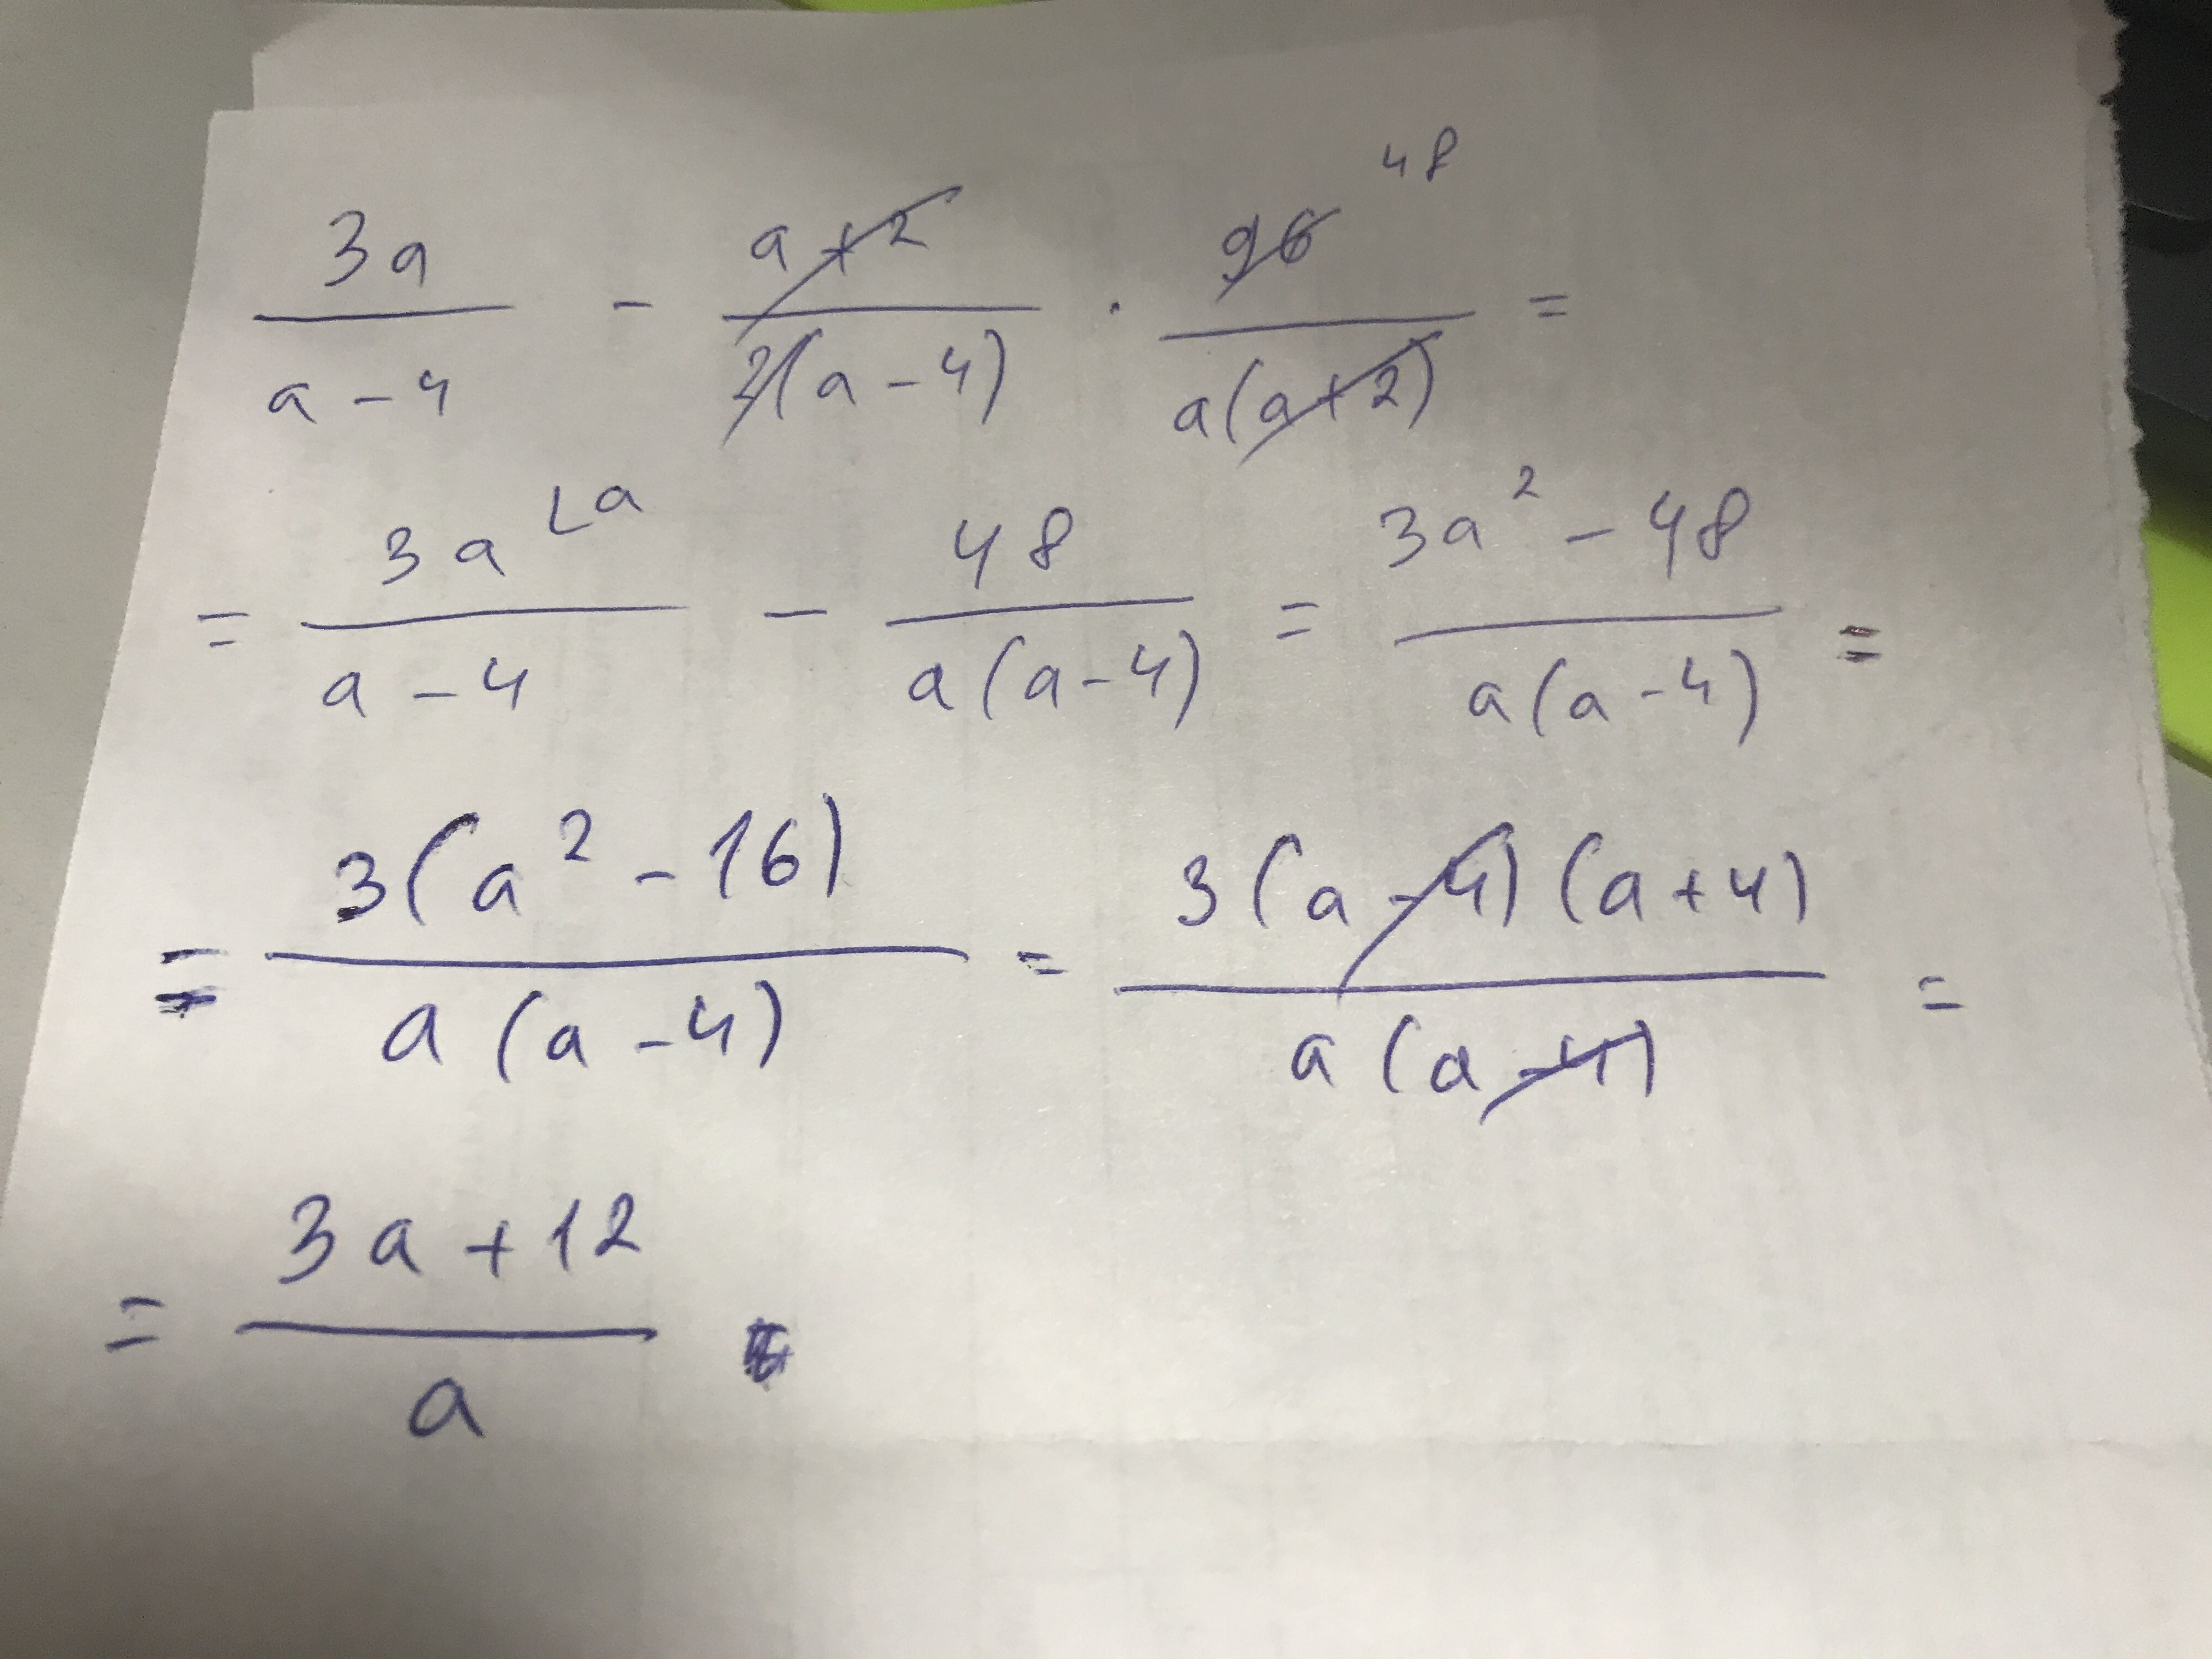 3a/(a-4) - (a+2)/(2(a-4)) · 96/(a(a+2)) = 48
= 3a/(a-4) ⌊a - 48/(a(a-4)) = (3a²-48)/(a(a-4)) =
= 3(a²-16)/(a(a-4)) = 3(a-4)(a+4)/(a(a-4)) =
= (3a+12)/a